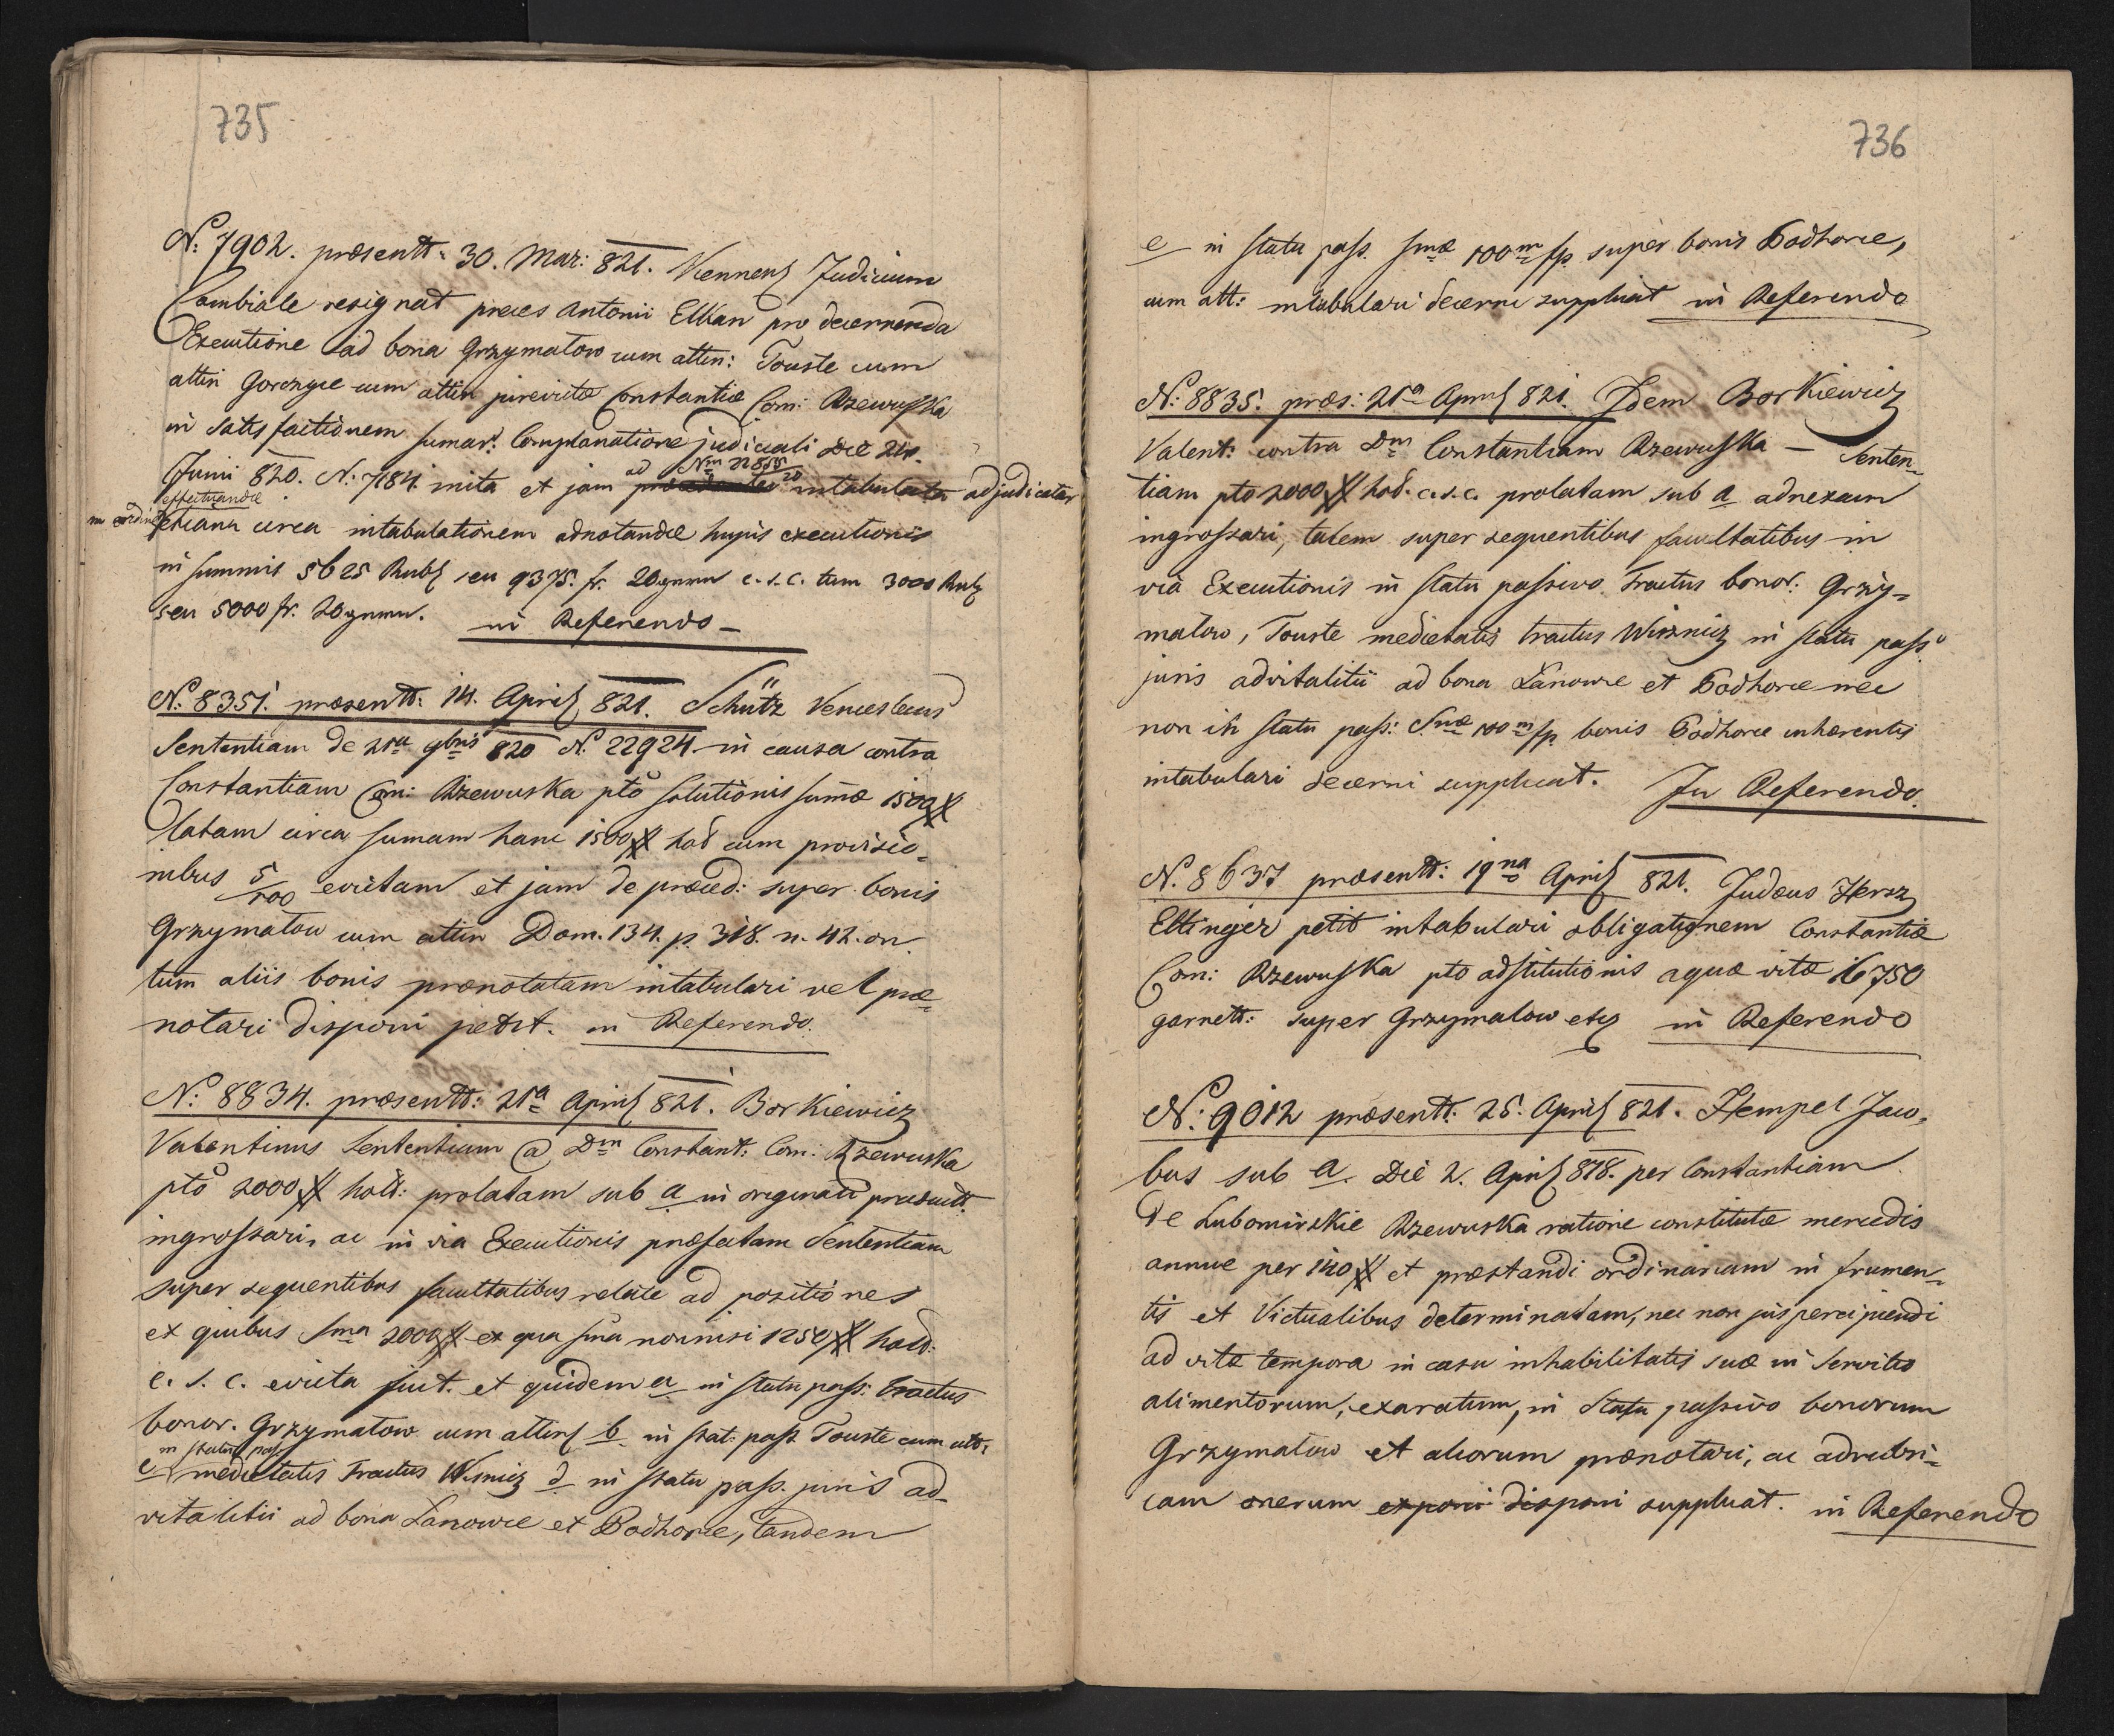 735
N: 7902. præsentt: 30. Mar: 821. Viennens Judicium
Cambiale resignat preces Antonii Elkan pro decernenda
Executione ad bona Grzymałow cum attin: Touste cum
attin Gorczyce cum attin jurevictæ Constantiæ Com: Rzewuska
in satisfactionem sumar: Complanatione judiciali die 21.
Junii 820. N. 7184 inita et jam ad Nm 22855/20 intabulata adjudicatar
in ordine effectuandæ etiam circa intabulationem adnotandæ hujus executionis
in summis 5625 Rub seu 9375 fr. 20gnmu c. s. c. tum 3000 Rub
seu 5000 fr. 20gnmu. in Referendo
N: 8351. præsentt: 14. April 821. Schütz Venceslaus
Sententiam de 21a 9bris 820 N. 22924 in causa contra
Constantiam Com: Rzewuska pto solutionis sumæ 1500 #
latam circa sumam hanc 1500 # hod cum provisio-
nibus 5/100 evictam et jam de præced: super bonis
Grzymałow cum attin Dom. 134. p. 318. n. 42. on
tum aliis bonis prænotatam intabulari vel præ-
notari disponi petit. in Referendo.
N: 8834. præsentt: 21a April 821. Borkiewicz
Valentinus Sententiam @ Dm Constant: Com: Rzewuska
pto 2000 # holl: prolatam sub a in originali productt
ingrossari, ac in via Executionis præfatam Sententiam
super sequentibus facultatibus relate ad positiones
ex quibus Sma 2000 # ex qua sma nonnisi 1250 # holl:
c. s. c. evicta fuit. et quidem a in statu pass: tractus
bonor. Grzymałow cum attin b in stat: pass Touste cum att:
c in statu pass medietatis Tractus Wisnicz d in statu pass. juris ad-
vitalitii ad bona Lanowce et Podhorce, tandem
736
e in statu pass. Smæ 100m fp. super bonis Podhorce,
cum att: intabulari decerni supplicat in Referendo
N: 8835. præs: 21a April 821. Idem Borkiewicz
Valent: contra Dm Constantiam Rzewuska — Senten-
tiam pto 2000 # hod. c. s. c. prolatam sub a adnexam
ingrossari, talem super sequentibus facultatibus in
via Executionis in statu passivo Tractus bonor: Grzy-
małow, Touste medietatis tractus Wisznicz in statu pass
juris advitalitii ad bona Lanowce et Podhorce nec
non in statu pass: Smæ 100m fp. bonis Podhorce inhærentis
intabulari decerni supplicat. In Referendo.
N. 8637 præsentt: 19na April 821. Judæus Hersz
Ettinger petit intabulari obligationem Constantiæ
Com: Rzewuska pto adstitutionis aquæ vitæ 16750
garnett: super Grzymałow etc in Referendo
N: 9012 præsentt: 25. April 821. Hempel Jaco-
bus sub a. die 2. April 818. per Constantiam
de Lubomirskie Rzewuska ratione constitutæ mercedis
annuæ per 140 # et præstandi ordinariam in frumen-
tis et Victualibus determinatam, nec non jus percipiendi
ad vitæ tempora in casu inhabilitatis suæ in servitio
alimentorum, exaratum, in Statu passivo bonorum
Grzymałow et aliorum prænotari, ac ad rubri-
cam onerum expori disponi supplicat. in Referendo